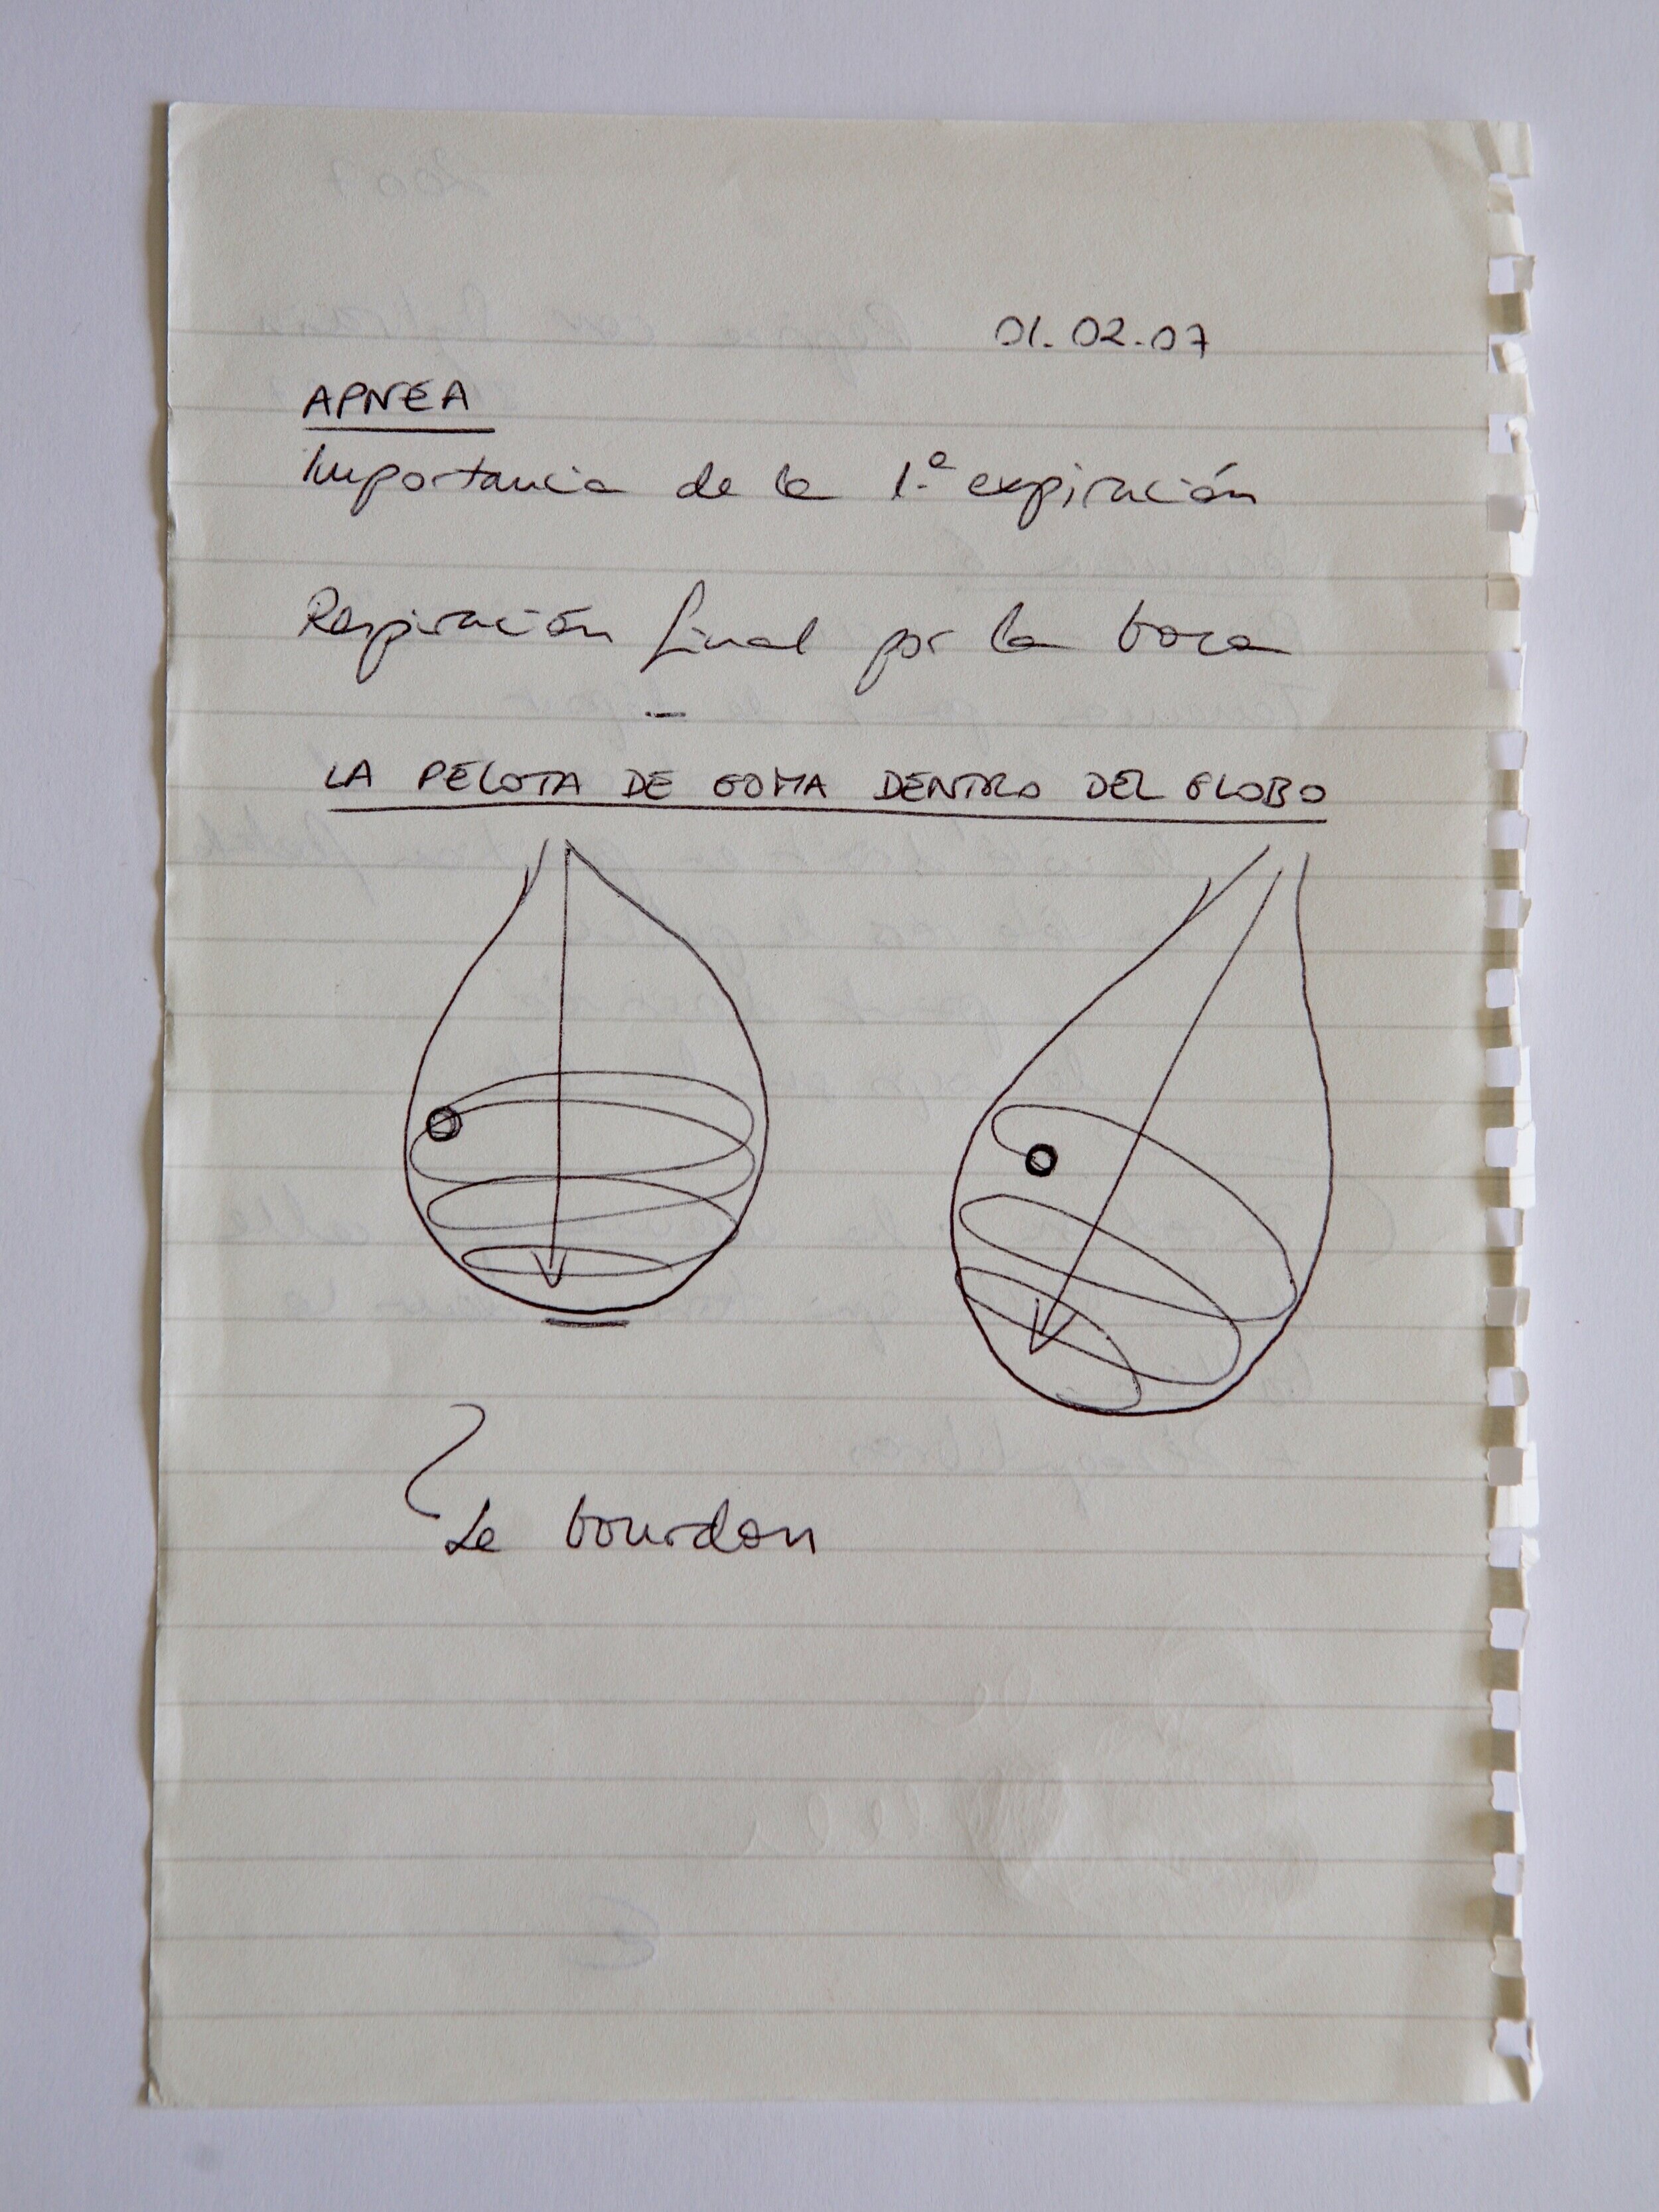 01.02.07
APNEA
Importancia de la 1.ª expiración
Respiración final por la boca
LA PELOTA DE GOMA DENTRO DEL GLOBO
Le bourdon